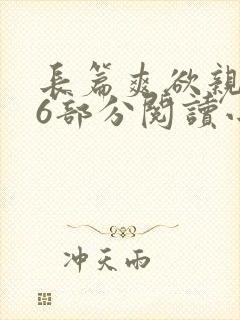 長篇爽欲親
6部分閱讀小
冲天雨